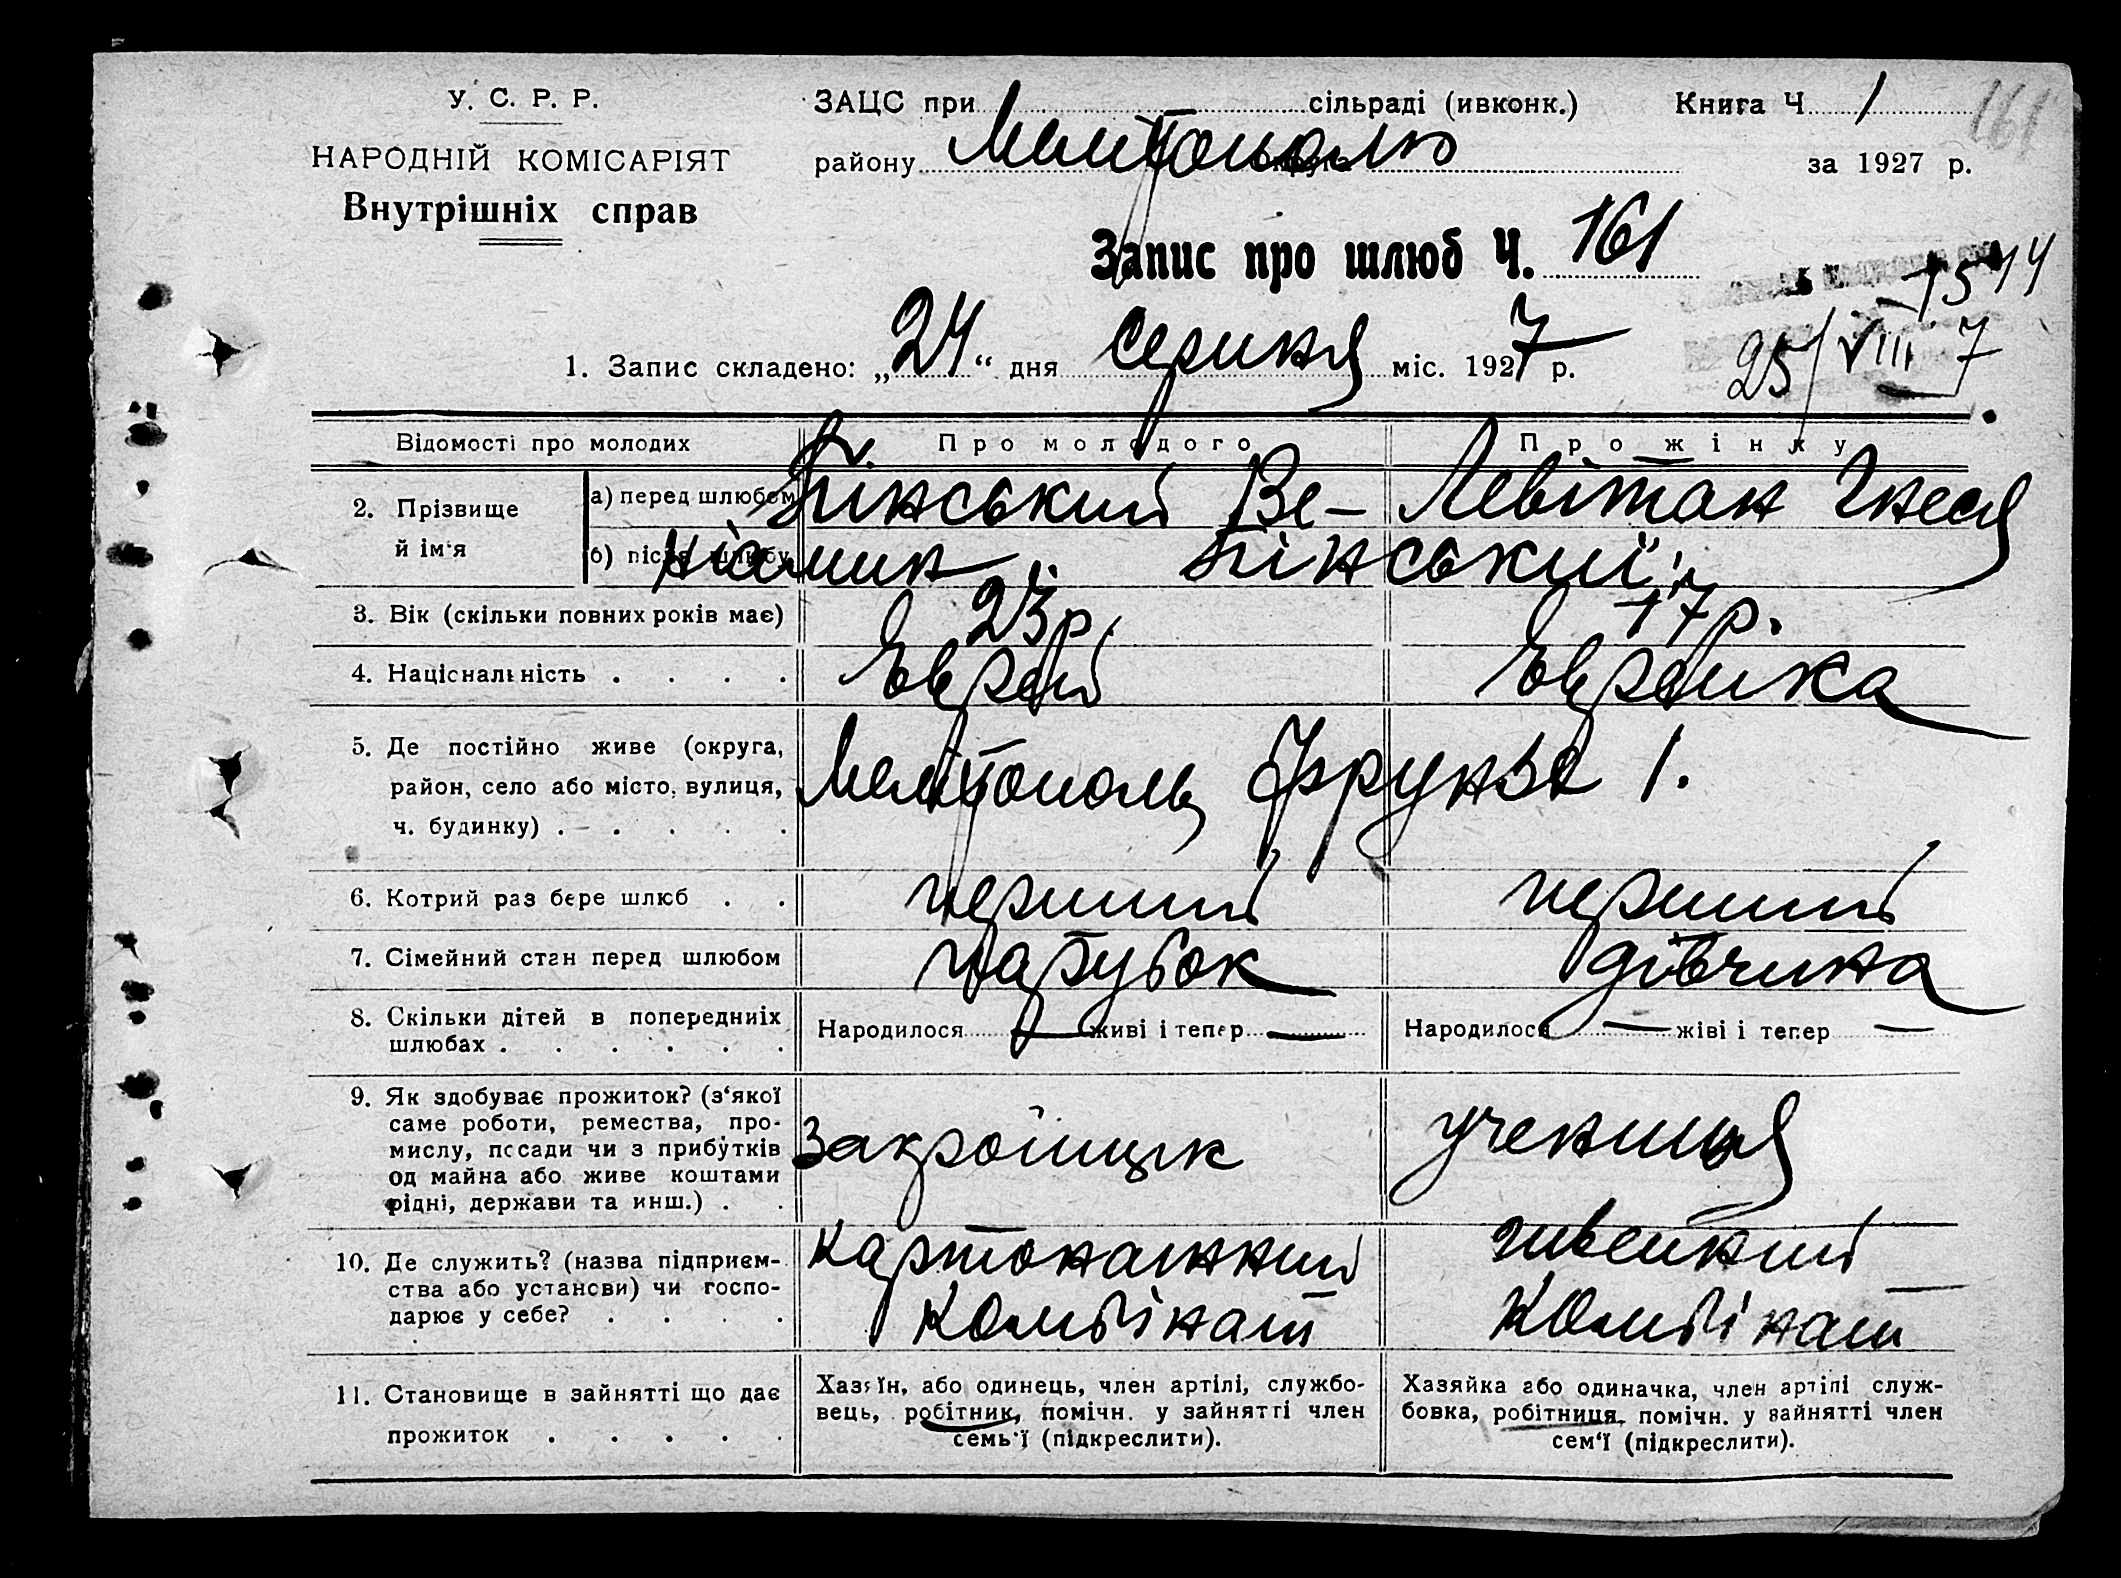 У. С. Р. Р.
НАРОДНІЙ КОМІСАРІЯТ
Внутрішніх справ
ЗАЦС при сільраді (ивконк.) Книга Ч. 1 161
району Мелітополю округа за 1927 р.
Запис про шлюб Ч. 161
1544
25/VIII 7
1. Запис складено: „24“ дня серпня міс. 1927 р.
Відомості про молодих Про молодого Про жінку
2. Прізвище й ім'я
а) перед шлюбом Пінський Ве- Левітан Гнеся
б) після шлюбу ніамин Пінський
3. Вік (скільки повних років має) 23 р. 17 р.
4. Національність . . . . Єврей Єврейка
5. Де постійно живе (округа,
район, село або місто, вулиця,
ч. будинку) . . . . .
Мелітополь Фрунзе 1.
6. Котрий раз бере шлюб . . перший перший
7. Сімейний стан перед шлюбом парубок дівчина
8. Скільки дітей в попередниіх
шлюбах . . . . . .
Народилося — живі і тепер — Народилося — жіві і тепер —
9. Як здобуває прожиток? (з'якої
саме роботи, ремества, про-
мислу, посади чи з прибутків
од майна або живе коштами
рідні, держави та инш.) . .
Закройщик учениця
10. Де служить? (назва підприєм-
ства або установи) чи госпо-
дарює у себе? . . . .
картонажний швейний
Комбінат Комбінат
11. Становище в зайнятті що дає
прожиток . . . . .
Хазяїн, або одинець, член артілі, службо-
вець, робітник, помічн. у зайнятті член
семь'ї (підкреслити).
Хазяйка або одиначка, член артілі служ-
бовка, робітниця, помічн. у зайнятті член
сем'ї (підкреслити).